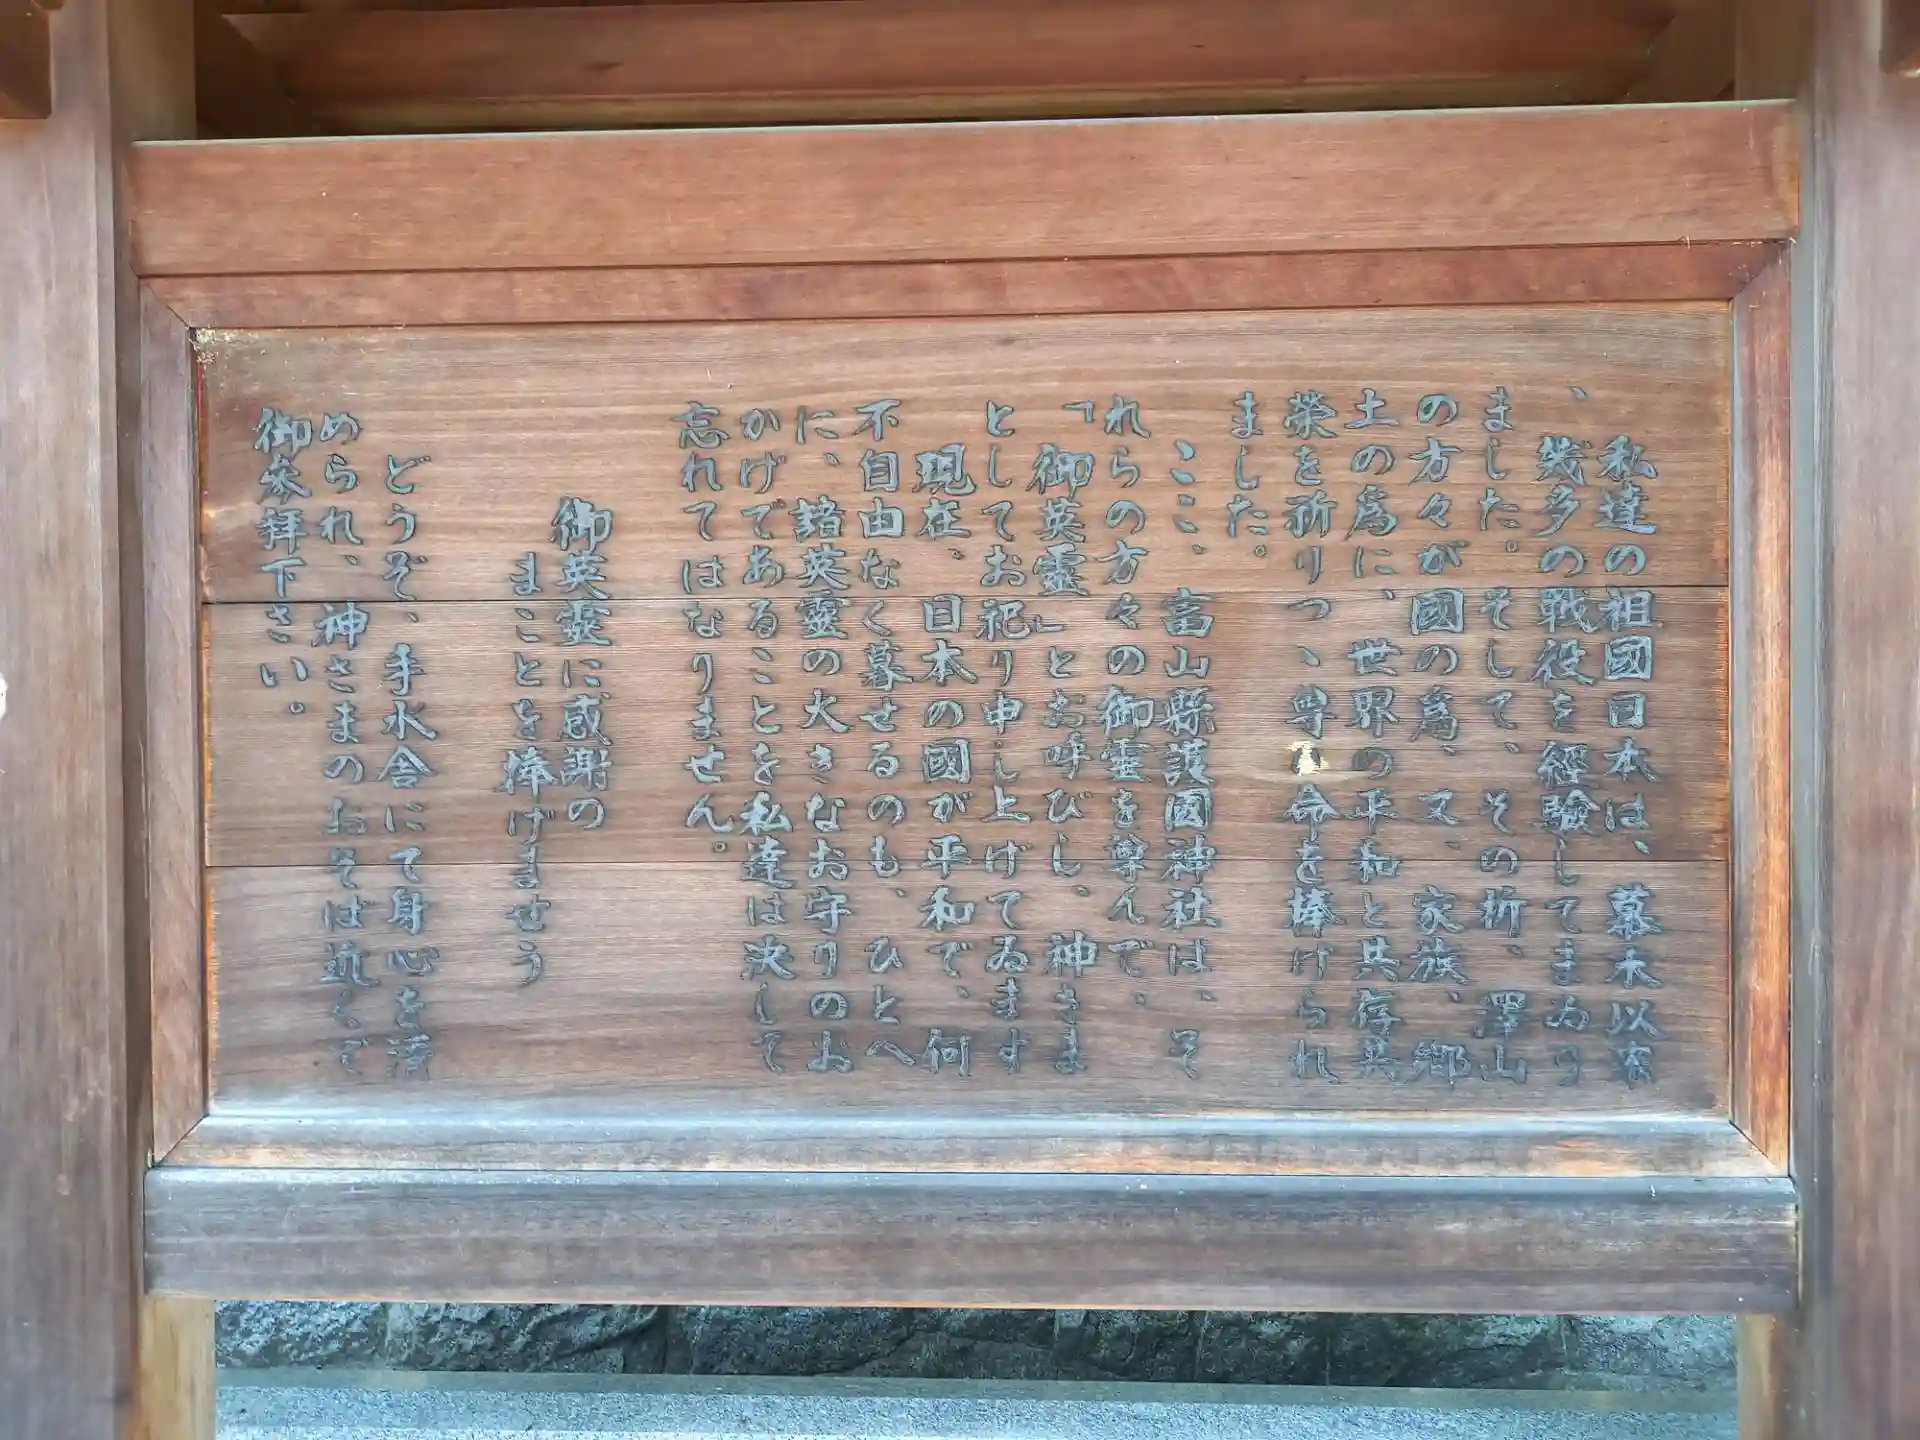 私達の祖國日本は、幕末以來
、幾多の戰役を經驗してまゐり
ました。そして、その折、澤山
の方々が國の為、又、家族、郷
土の為に、世界の平和と共存共
榮を祈りつゝ尊い命を捧げられ
ました。
ここ、富山縣護國神社は、そ
れらの方々の御霊を尊んで、
「御英靈」とお呼びし、神さま
としてお祀り申し上げてゐます
現在、日本の國が平和で、何
不自由なく暮せるのも、ひとへ
に、諸英靈の大きなお守りのお
かげであることを私達は決して
忘れてはなりません。
御英靈に感謝の
まことを捧げませう
どうぞ、手水舎にて身心を清
められ、神さまのおそば近くで
御参拜下さい。